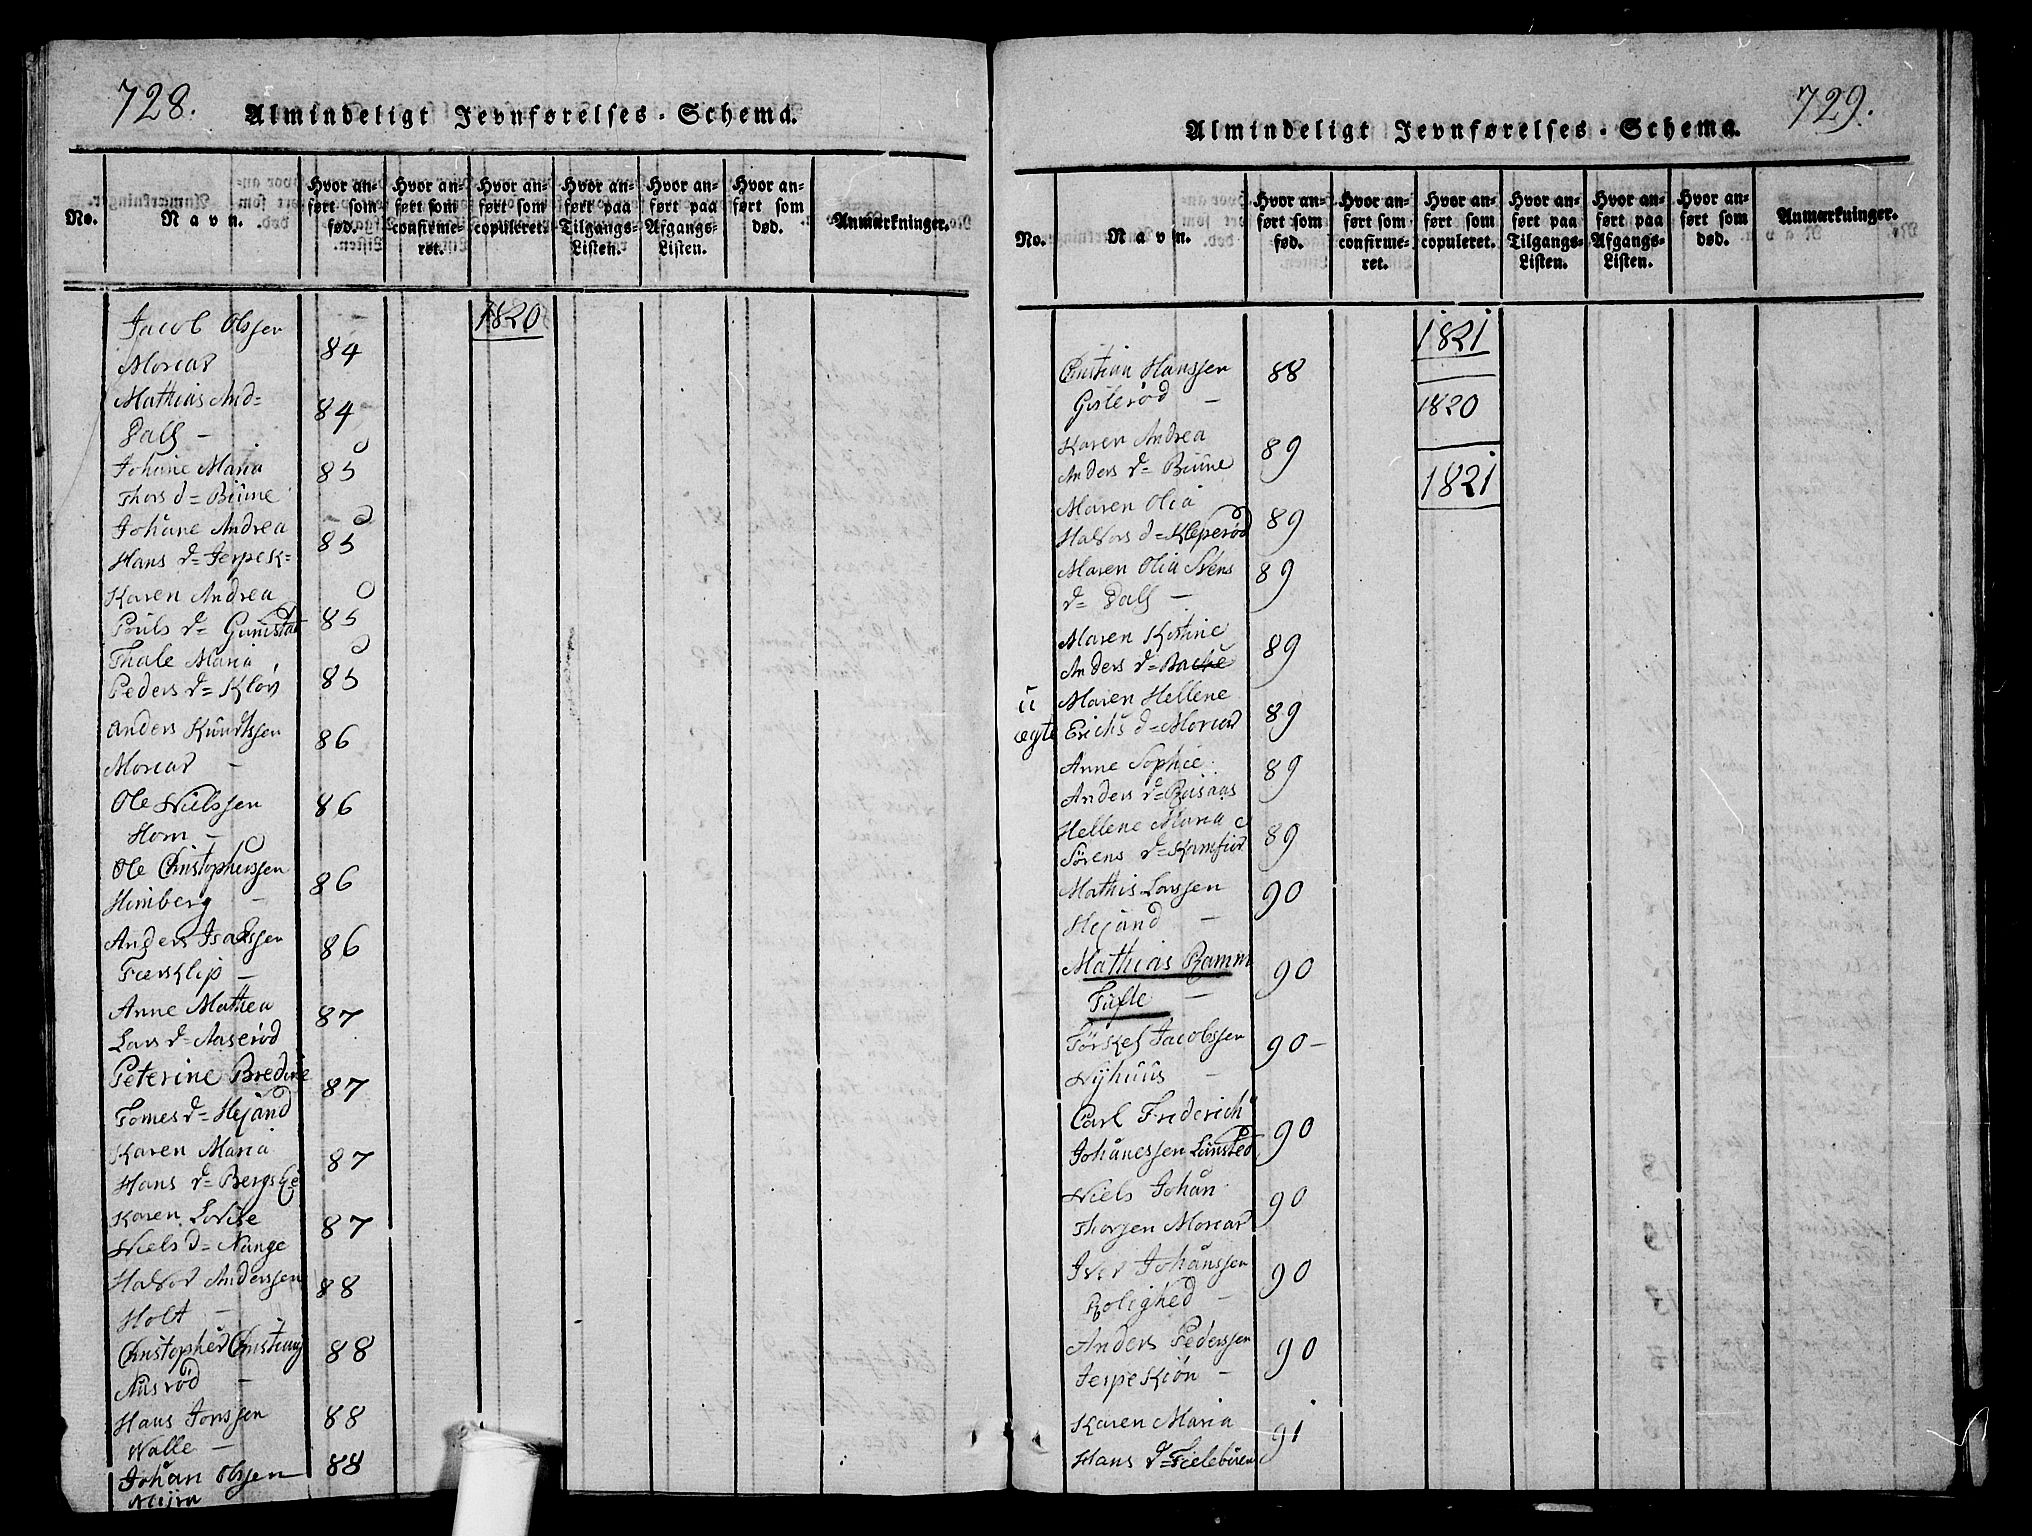 728.
Almindeligt Jevnførelses-Schema.
No.
Navn.
Hvor anført som født.
Hvor anført som confirmeret.
Hvor anført som copuleret.
Hvor anført paa Tilgangs-Listen.
Hvor anført paa Afgangs-Listen.
Hvor anført som død.
Anmærkninger.
1820
Jacob Olssen
Morcar 84
Mathias And=
Dals - 84
Johane Maria 85
Thors d= Biüne
Johane Andrea
Hans d= Jerpek= 85
Karen Andrea
Pouls d= 85
Thale Maria
Peders d= Kløv 85
Anders Knudssen
Morcar - 86
Ole Nielssen 86
Horn -
Ole Christophersen
Himberg - 86
Anders Isakssen 86
Færklip -
Anne Mathea 87
Lars d= Aaserød
Peterine Bredine 87
Tomes d= Hejand
Karen Maria 87
Hans d= Bergske
Karen Lovise 87
Niels d= Nange
Halvor Anderssen 88
Holt -
Christopher Christians 88
Ausrød -
Hans Jonssen 88
Walle -
Johan Olssen 88
729.
Almindeligt Jevnførelses-Schema.
No.
Navn.
Hvor anført som fød.
Hvor anført som confirmeret.
Hvor anført som copuleret.
Hvor anført paa Tilgangs-Listen.
Hvor anført paa Afgangs-Listen.
Hvor anført som død.
Anmærkninger.
1821
Christian Hanssen 88
Gislerød - 1820
Karen Andrea
Anders d= Biüne 89
1821
Maren Olia
Halvors d= Kleperød 89
Maren Olia Svens 89
d= Dals -
Maren Kistine 89
Anders d= Bache
ü Maren Hellene 89
ægte Erichs d= Morcar
Anne Sophie 89
Anders d= Büsaas
Hellene Maria 89
Sørens d= Kamfior
Mathis Larssen 90
Hejand -
Mathias Ramm 90
Tufte -
Torkel Jacobssen 90-
Nyhuus -
Carl Friderich 90
Johanessen Lünsted
Niels Johan 90
Thorsen Morcar
Iver Johanssen 90
Rolighed -
Anders Pederssen 90
Jerpekiön -
Karen Maria 91
Hans d= Fieleburen